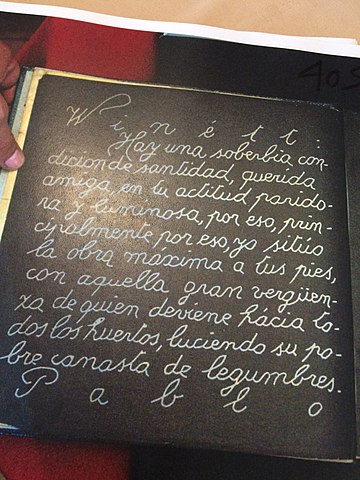 403
Winétt:
Hay una soberbia con-
dición de santidad, querida
amiga, en tu actitud parido-
ra y luminosa, por eso, prin-
cipalmente por eso, yo sitúo
la obra máxima a tus pies,
con aquella gran vergüen-
za de quien deviene hácia to-
dos los huertos, luciendo su po-
bre canasta de legumbres.
Pablo